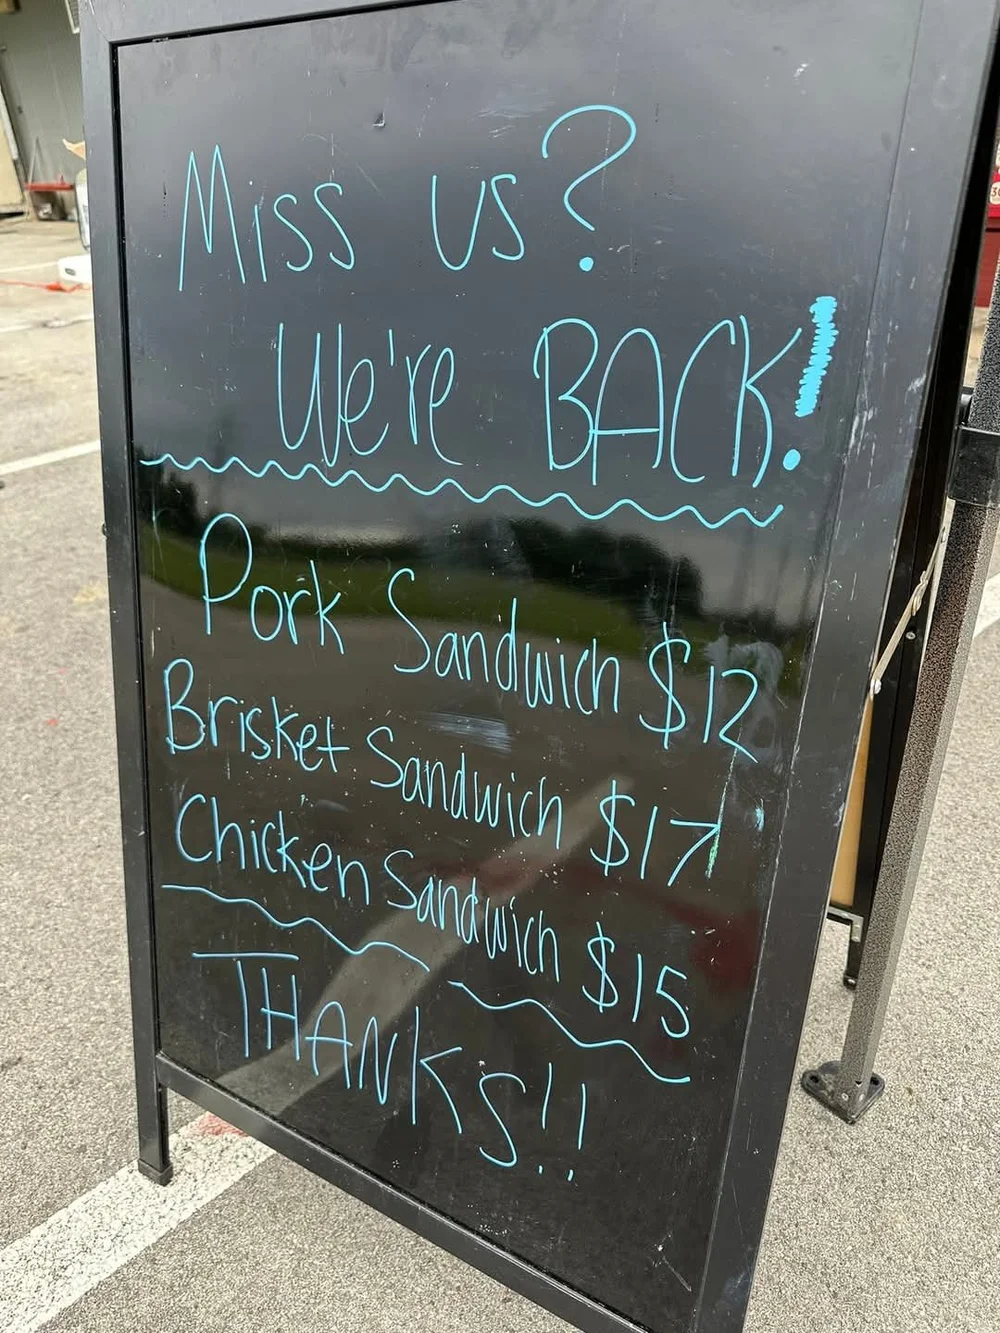 Miss us?
We're BACK!
Pork Sandwich $12
Brisket Sandwich $17
Chicken Sandwich $15
THANKS!!